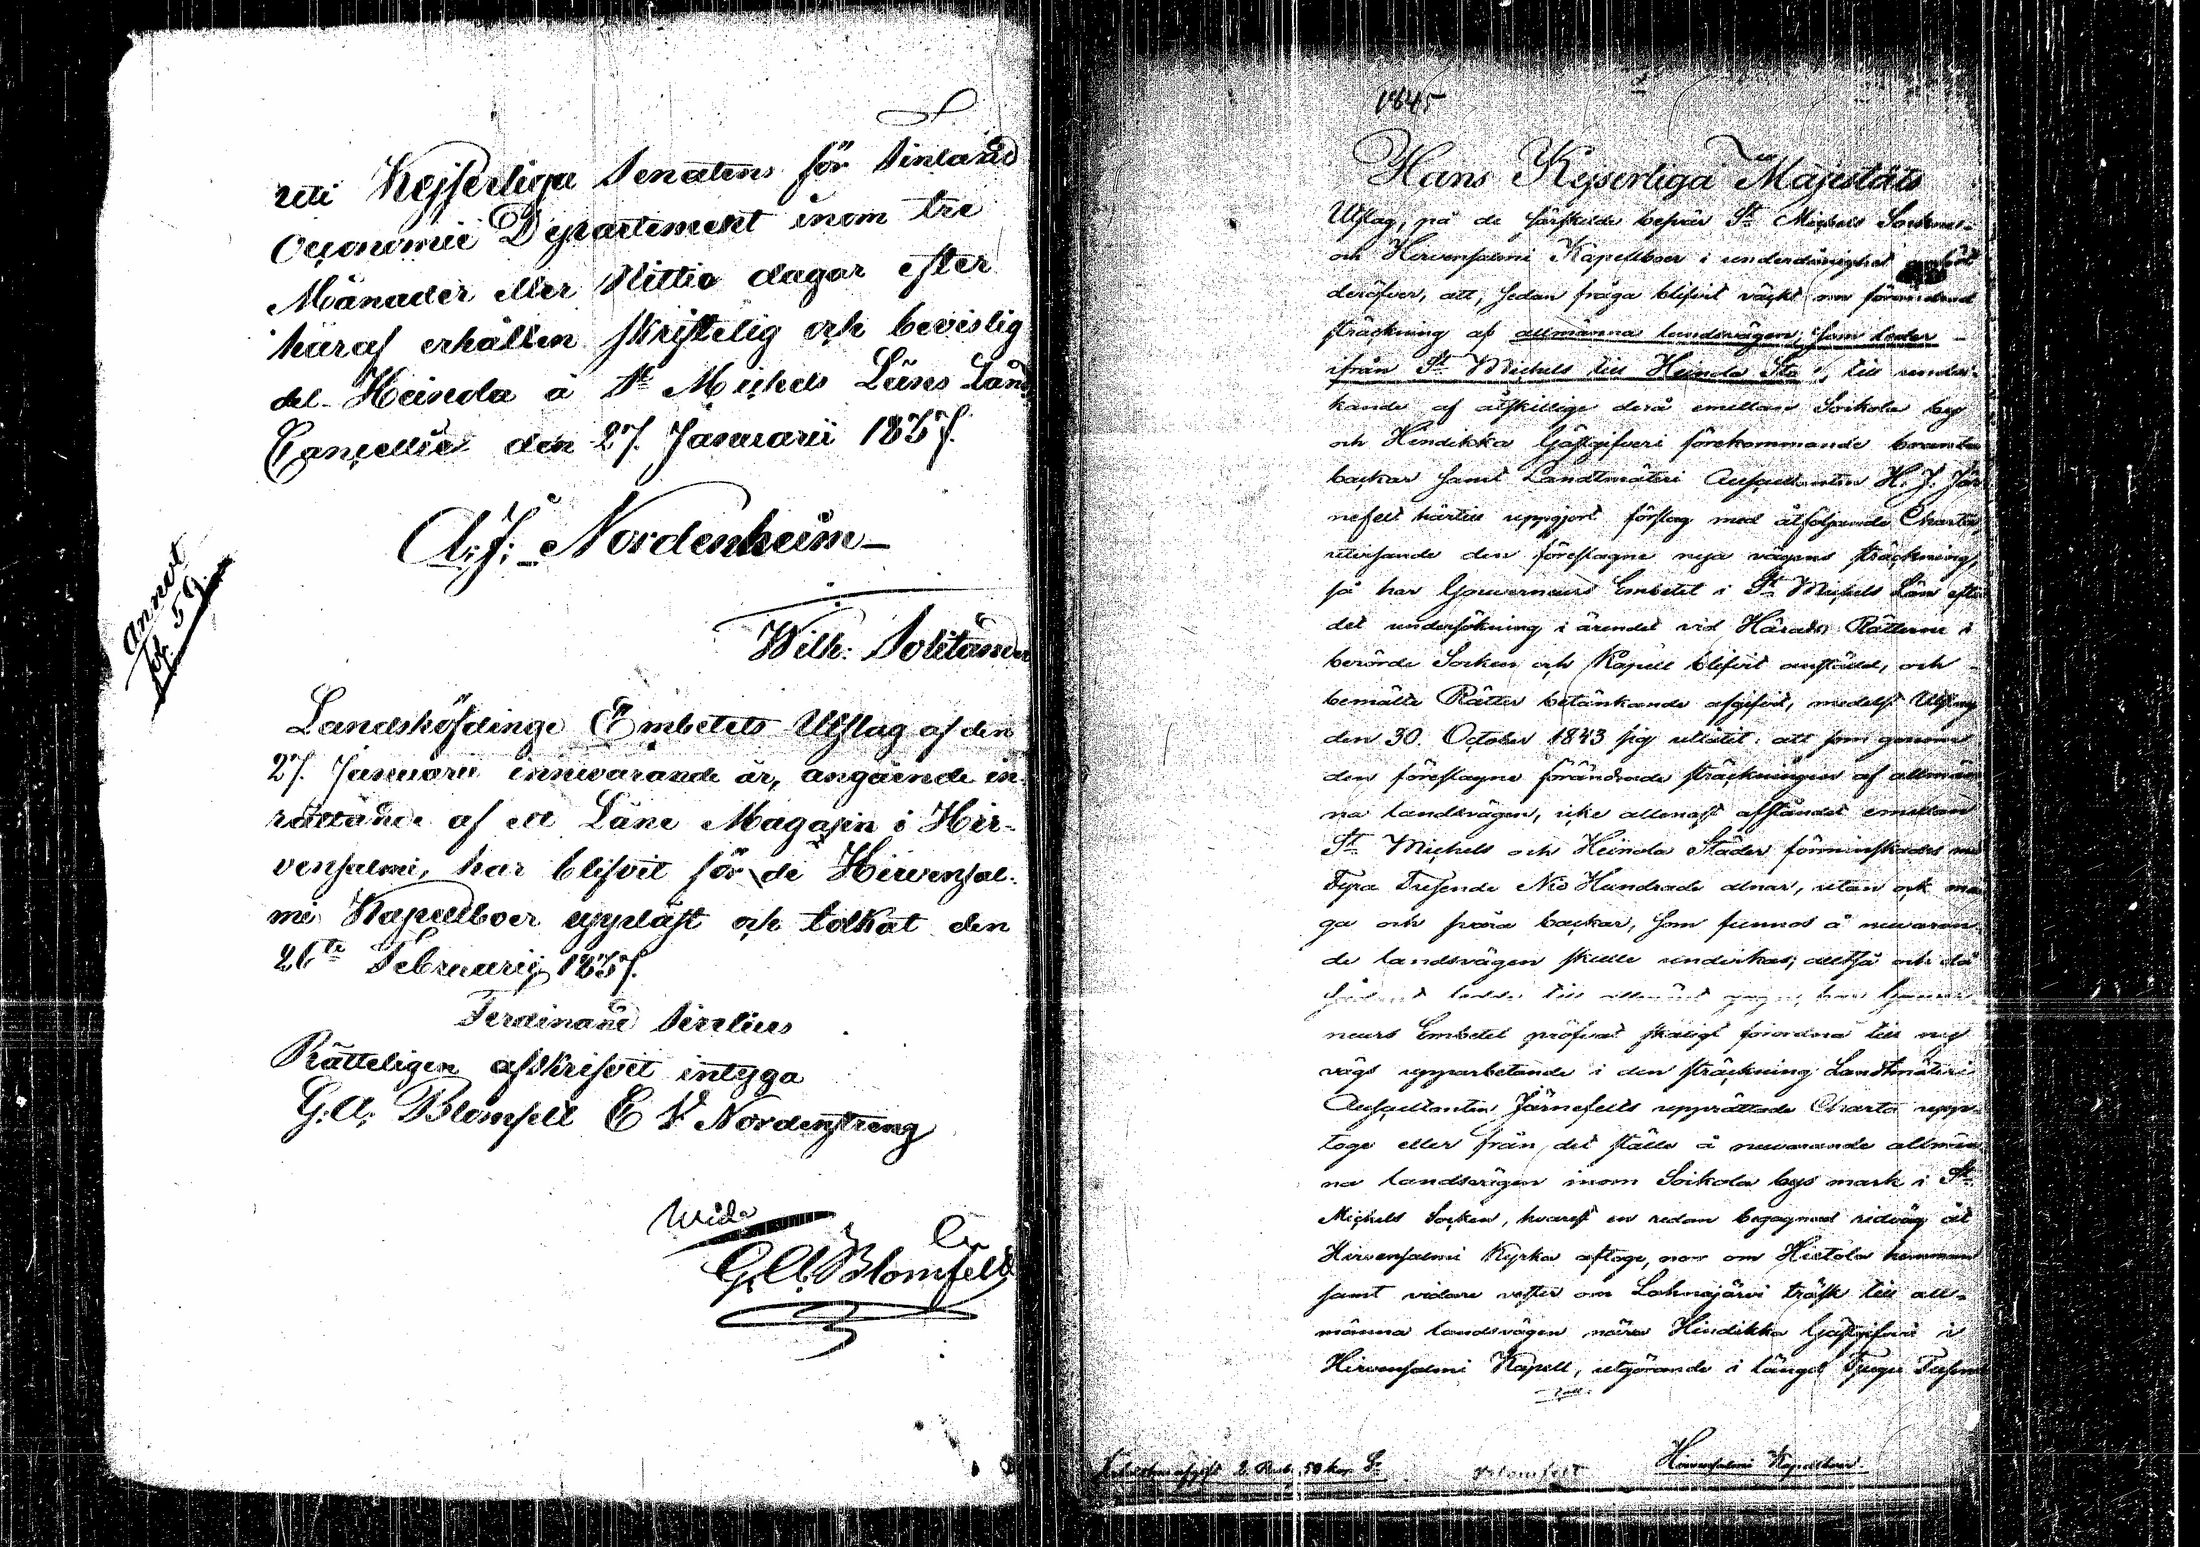 uti Kejserliga Senatens för Finland
Oeconomie Departement inom tre
Månader eller Nittio dagar efter
häraf erhållen skriftelig och bevislig
del. Heinola å St Michels Läns Lands
Cancellie den 27. Januarii 1837.
A: F: Nordenheim
Wilh: Solitander
Annot
pg. 59
Landshöfdinge Embetets Utslag af den
27. Januarii innevarande år, angående in-
rättande af ett Låne Magasin i Hir-
vensalmi, har blifvit för de Hirvensal-
mi Kapellboer uppläst och tolkat den
26te Februarij 1837.
Ferdinand Sirelius
Rätteligen afskrifvit intyga
G: A: Blomfelt E V Nordenstreng
Wid
G. A. Blomfelt
1845
Hans Kejserliga Majestäts
Utslag, på de särskilde besvär St Michels Sockne-
och Hirvensalmi Kapellboer i underdånighet anfört
deröfver, att, sedan fråga blifvit väckt om förändrad
sträckning af allmänna landsvägen, som leder
ifrån St Michels till Heinola Stad, till undvi-
kande af åtskillige derå emellan Soikola by
och Hindikka Gästgifveri förekommande branta
backar samt Landtmäteri Auscultanten H. J. Jär
nefelt härtill uppgjort förslag med åtföljande Charta,
utvisande den föreslagne nya vägens sträckning,
så har Gouverneurs Embetet i St Michels Län efter
det undersökning i ärendet vid Härads Rätterne i
berörde Socken och Kapell blifvit anställd, och
bemälte Rätter betänkande afgifvit, medelst Utslag
den 30. October 1843 sig utlåtit: att som genom
den föreslagne förändrade sträckningen af allmän
na landsvägen, icke allenast afståndet emellan
St Michels och Heinola Städer förminskades med
Fyra Tusende Nio Hundrade alnar, utan ock mån
ga och svåra backar, som funnos å nuvaran
de landsvägen skulle undvikas; alltså och då
sådant ledde till allmänt gagn, har Gouver-
neurs Embetet pröfvat skäligt förordna till ny
vägs upparbetande i den sträckning Landtmäteri
Auscultanten Järnefelts upprättade Charta upp-
toge eller från det ställe å nuvarande allmän
na landsvägen inom Soikola bys mark i St
Michels Socken, hvarest en redan begagnad ridväg åt
Hirvensalmi Kyrka aftoge, norr om Hietola hemman
samt vidare vester om Lahnajärvi träsk till all-
männa landsvägen nära Hindikka Gästgifveri i
Hirvensalmi Kapell, utgörande i längd Tjugu Tusend
2 Rub. 50 kop. Sr
Blomfelt
Hirvensalmi Kapellboer.